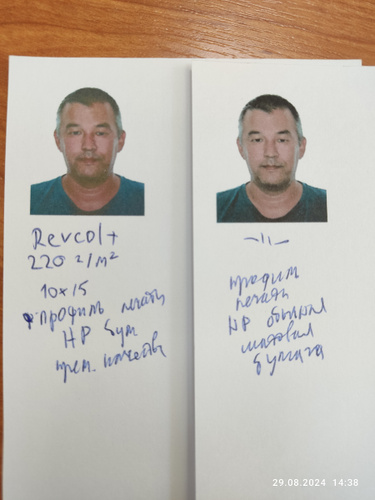 Revcolt
220 г/м²
10x15
профиль печати
HP бум
прем. качества
-//-
профиль
печати
HP обычная
матовая
бумага
29.08.2024 14:38